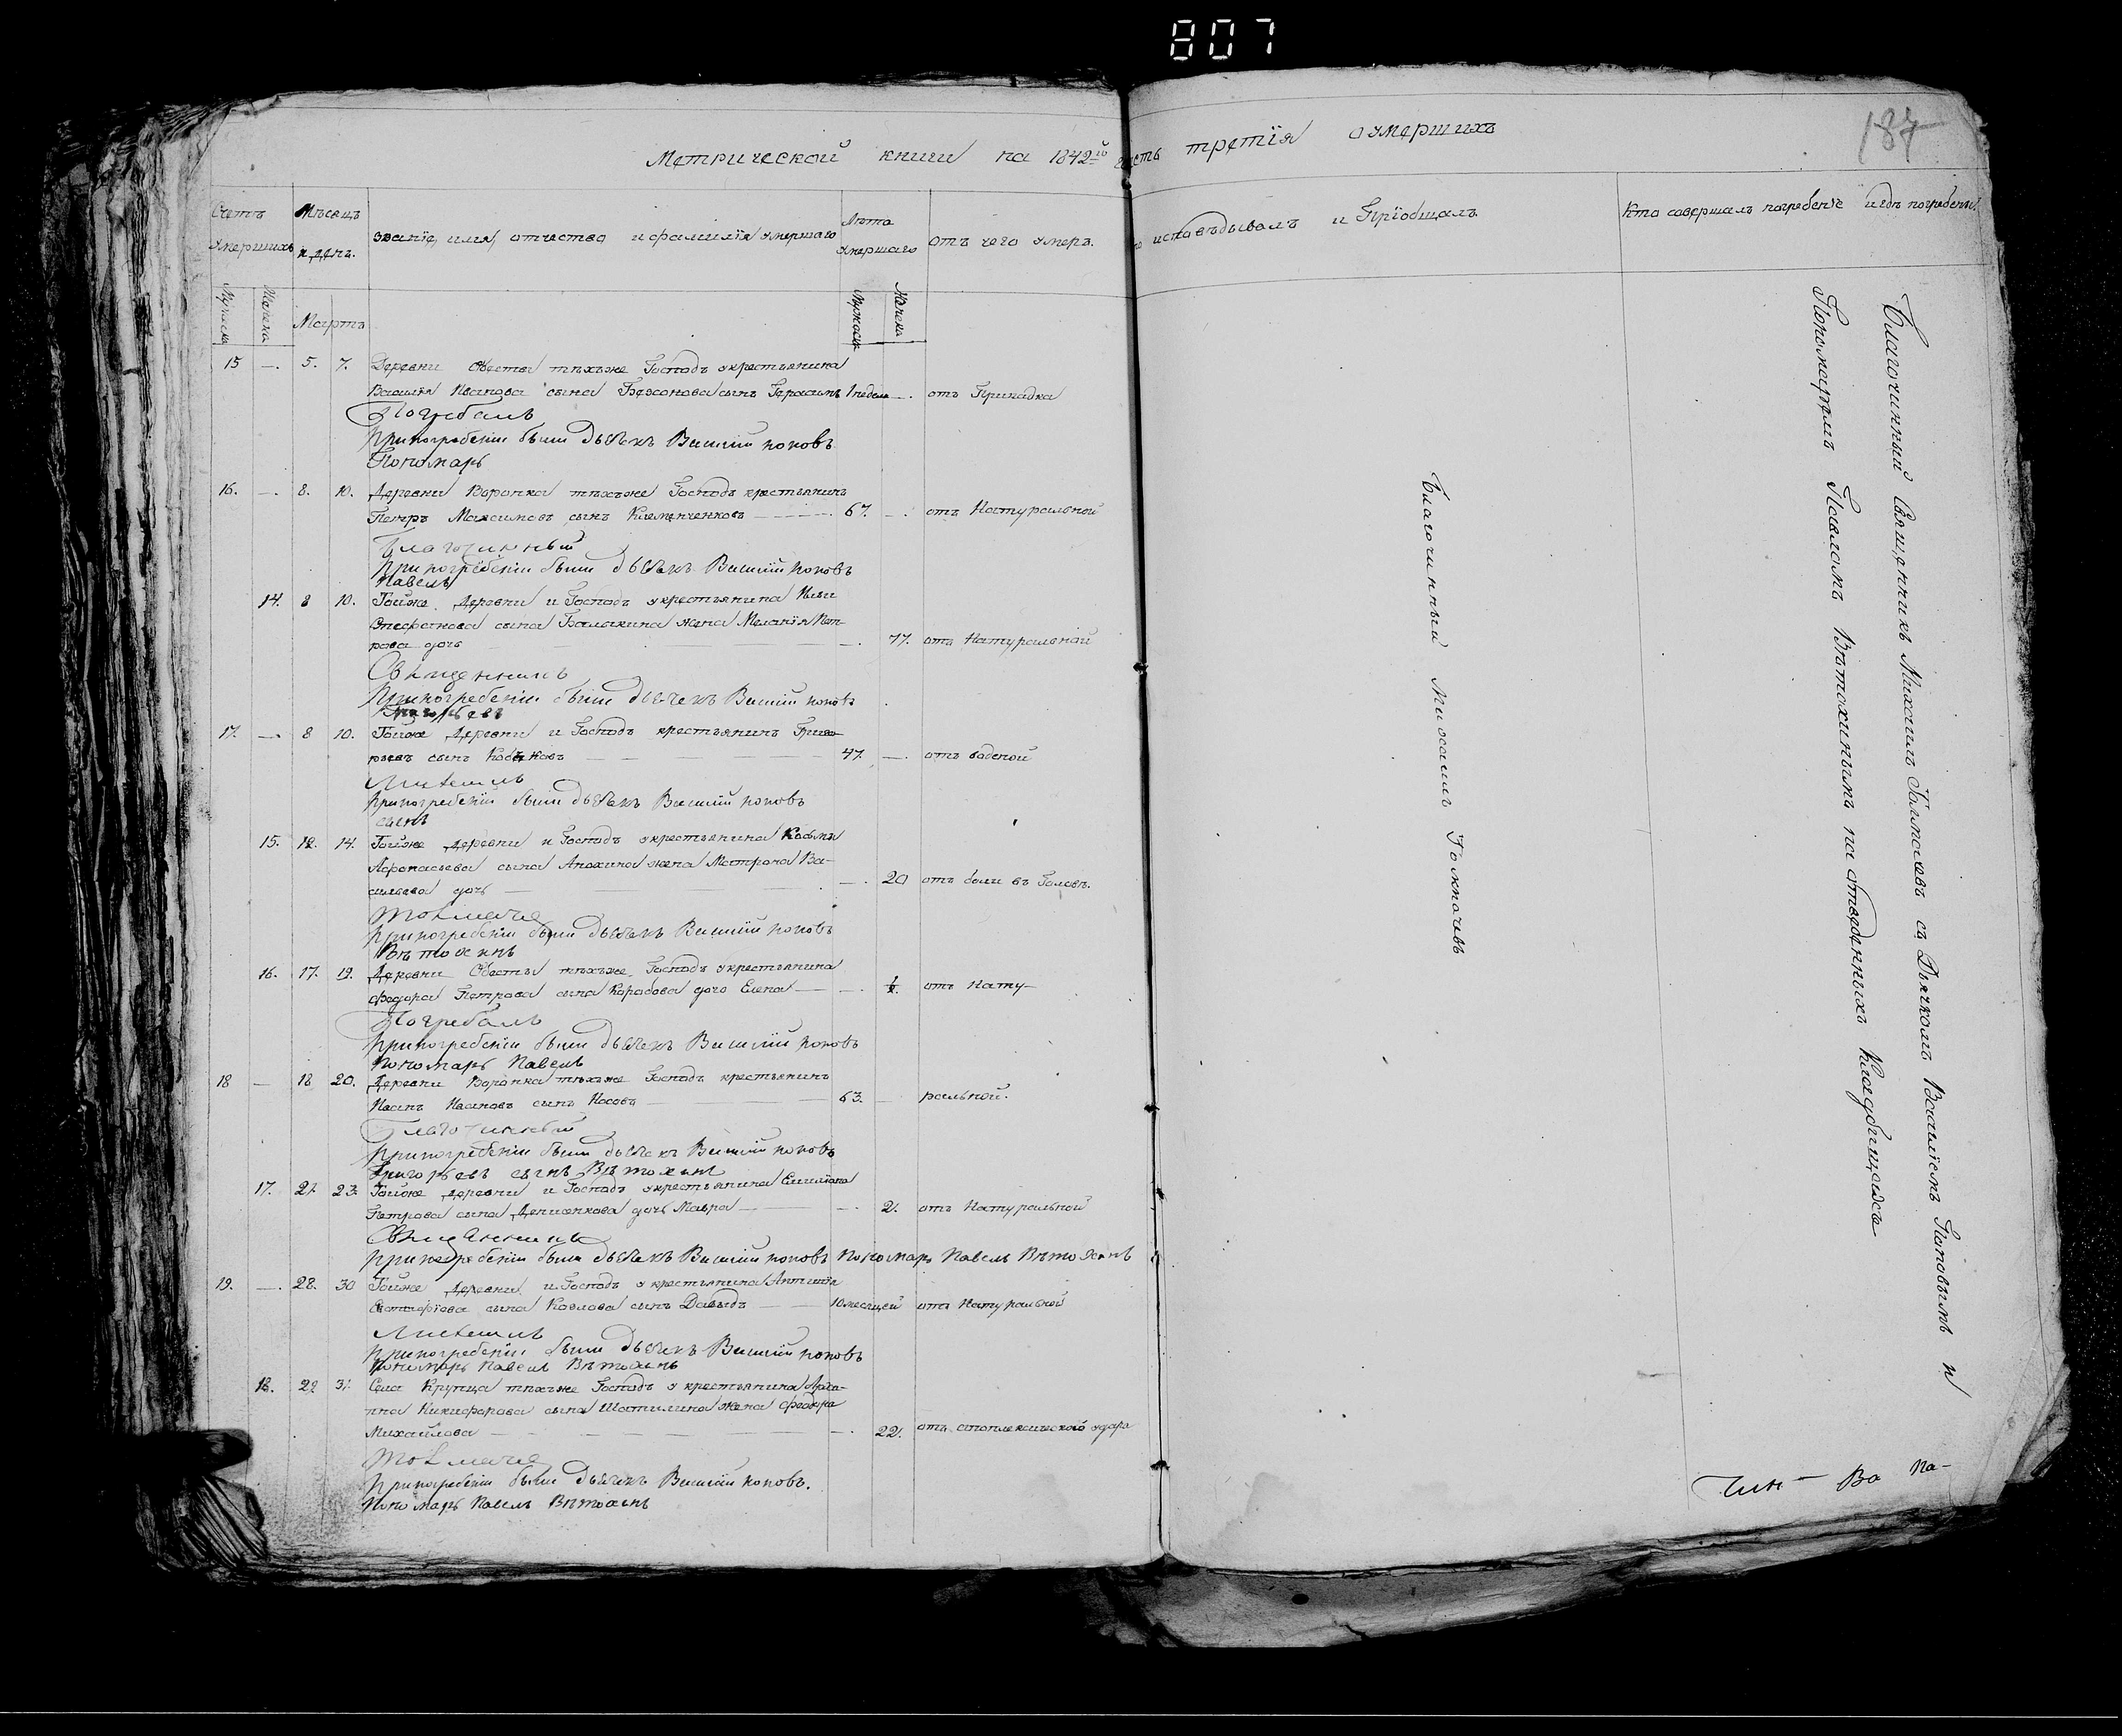 807
187
Метрической книги на 1842й часть третія о умершихъ
Счетъ умершихъ
Мѣсяцъ и день.
званіе, имя, отчество и фамилія умершаго
Лѣта умершаго
отъ чего умеръ.
исповѣдывалъ и Пріобщалъ
Кто совершалъ погребеніе и гдѣ погребены.
Мужеска
Женска
Мартъ
Мужеска
Женска
15 — 5. 7. Деревни тѣхъже Господъ укрестьянина
Василія Иванова сына сынъ Герасимъ 1 недели — отъ Припадка
Погребалъ
При погребеніи были дьячекъ Василій поповъ
Пономарь
16. — 8. 10. Деревни Воронка тѣхъже Господъ крестьянинъ
Петръ Максимовъ сынъ Клеменченковъ 67. — отъ Натуральной
Благочинный
При погребеніи были дьячекъ Василій поповъ
Павелъ
14. 8 10. Тойже Деревни и Господъ укрестьянина Ильи
сына Балыкина жена Меланія Пет-
рова дочь — 77. отъ Натуральной
Священникъ
При погребеніи были дьячекъ Василій поповъ
Григорьевъ
17. — 8 10. Тойже Деревни и Господъ крестьянинъ Григо-
рьевъ сынъ 47. — отъ водяной
Михаилъ
При погребеніи были дьячекъ Василій поповъ
сынъ
15. 12. 14. Тойже Деревни и Господъ укрестьянина Козьмы
Афонасьева сына Анохина жена Матрона Ва-
сильева дочь — 20 отъ боли въ Головѣ.
Толмаче
При погребеніи были дьячекъ Василій поповъ
Вѣтохинъ
16. 17. 19. Деревни тѣхъже Господъ укрестьянина
Федора Петрова сына Коробова дочь Елена — отъ Нату-
Погребалъ
При погребеніи были дьячекъ Василій поповъ
Пономарь Павелъ
18 — 18 20. Деревни Воронка тѣхъже Господъ крестьянинъ
Иванъ Ивановъ сынъ Носовъ 63. ральной.
Благочинный
При погребеніи были дьячекъ Василій поповъ
Григорьевъ сынъ Вѣтохинъ
17. 21. 23. Тойже Деревни и Господъ укрестьянина Емиліана
Петрова сына Денисенкова дочь Мавра — 2. отъ Натуральной
Священникъ
При погребеніи были дьячекъ Василій поповъ Пономарь Павелъ Вѣтохинъ
19. — 28. 30 Тойже Деревни и Господъ укрестьянина
сына Козлова сынъ Давыдъ 10 месяцей отъ Натуральной
Михаилъ
При погребеніи были дьячекъ Василій поповъ
Пономарь Павелъ Вѣтохинъ
18. 29 31. Села Крупца тѣхъже Господъ укрестьянина
Никифорова сына Шатилина жена Федора
Михайлова — 22. отъ апоплексическаго удара
Толмаче
При погребеніи были дьячекъ Василій поповъ.
Пономарь Павелъ Вѣтохинъ
Благочинный Михаилъ Толмачевъ
Благочинный Священникъ Михаилъ Толмачевъ съ Дьячкомъ Василіемъ Поповымъ и
Пономаремъ Павломъ Вѣтохинымъ на отведенныхъ Кладбищахъ
Чин- Во По-